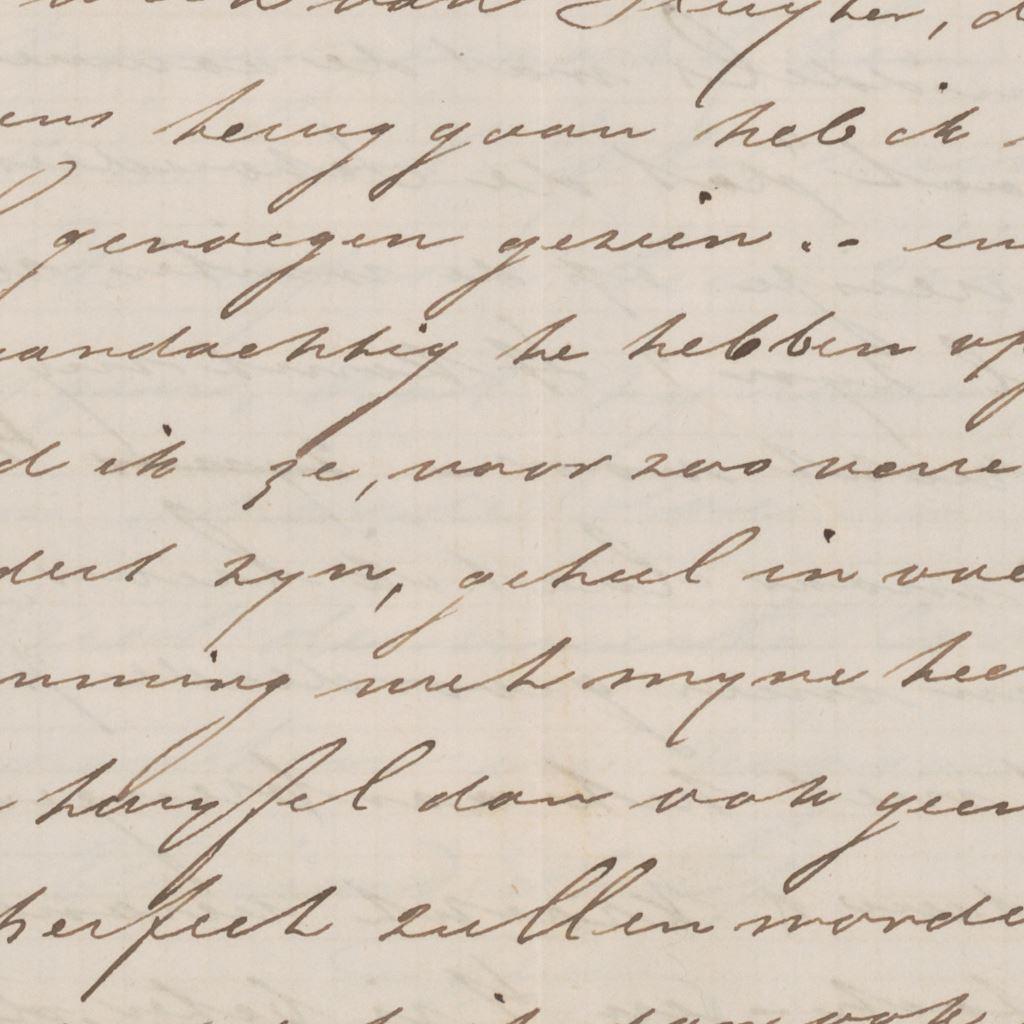 van Kuyper, d
ens terug gaan heb ik
genoegen gezien . - en
aandachtig te hebben op
d ik ze, voor zoo verre
dert zyn, geheel in ove
mming met myne tee
twyffel dan ook geen
perfect zullen worde